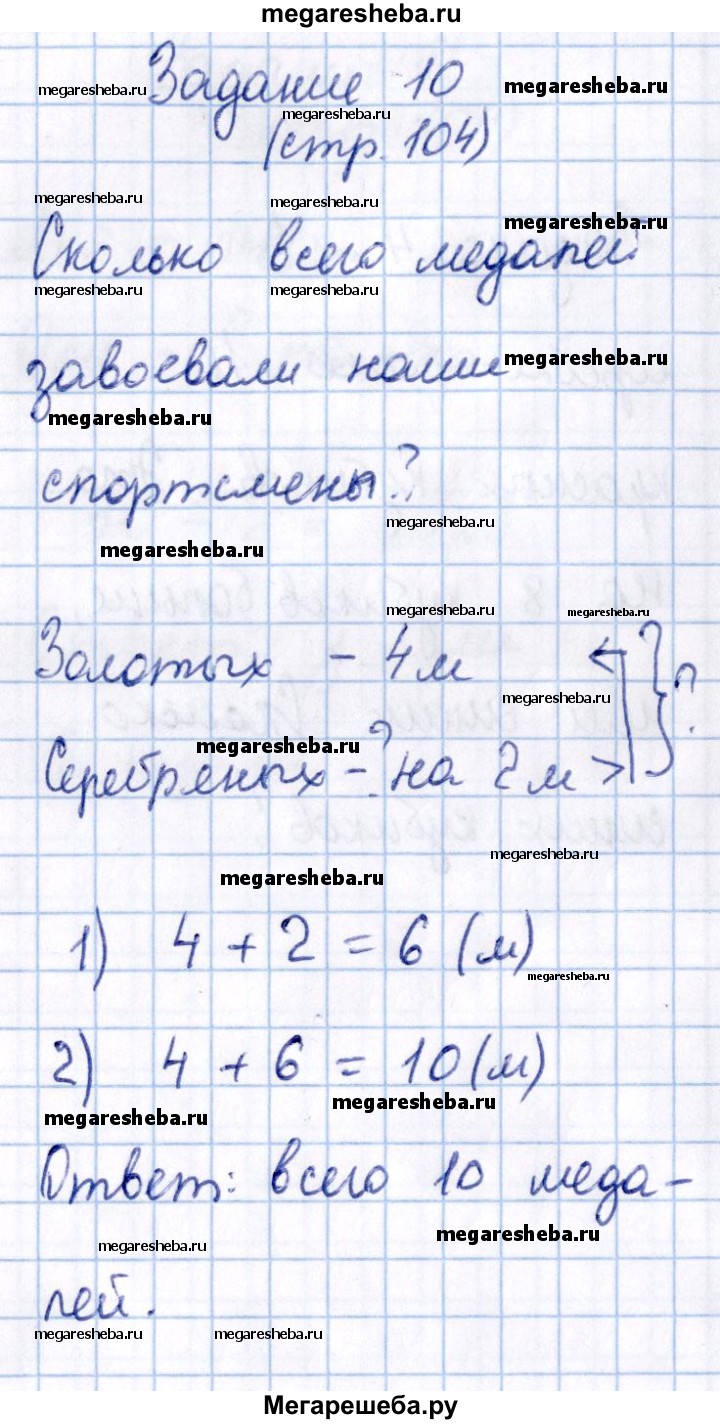 megaresheba.ru
Задание 10
megaresheba.ru megaresheba.ru
megaresheba.ru
(стр. 104)
megaresheba.ru megaresheba.ru megaresheba.ru
Сколько всего медалей
megaresheba.ru megaresheba.ru
завоевали наши megaresheba.ru
megaresheba.ru
спортсмены?
megaresheba.ru
megaresheba.ru
megaresheba.ru megaresheba.ru
Золотых - 4 м
megaresheba.ru
megaresheba.ru
Серебряных - ? на 2 м > ?
megaresheba.ru
megaresheba.ru
1) 4 + 2 = 6 (м)
megaresheba.ru
2) 4 + 6 = 10 (м)
megaresheba.ru megaresheba.ru
Ответ: всего 10 меда-
megaresheba.ru megaresheba.ru
лей.
megaresheba.ru megaresheba.ru
Мегарешеба.ру